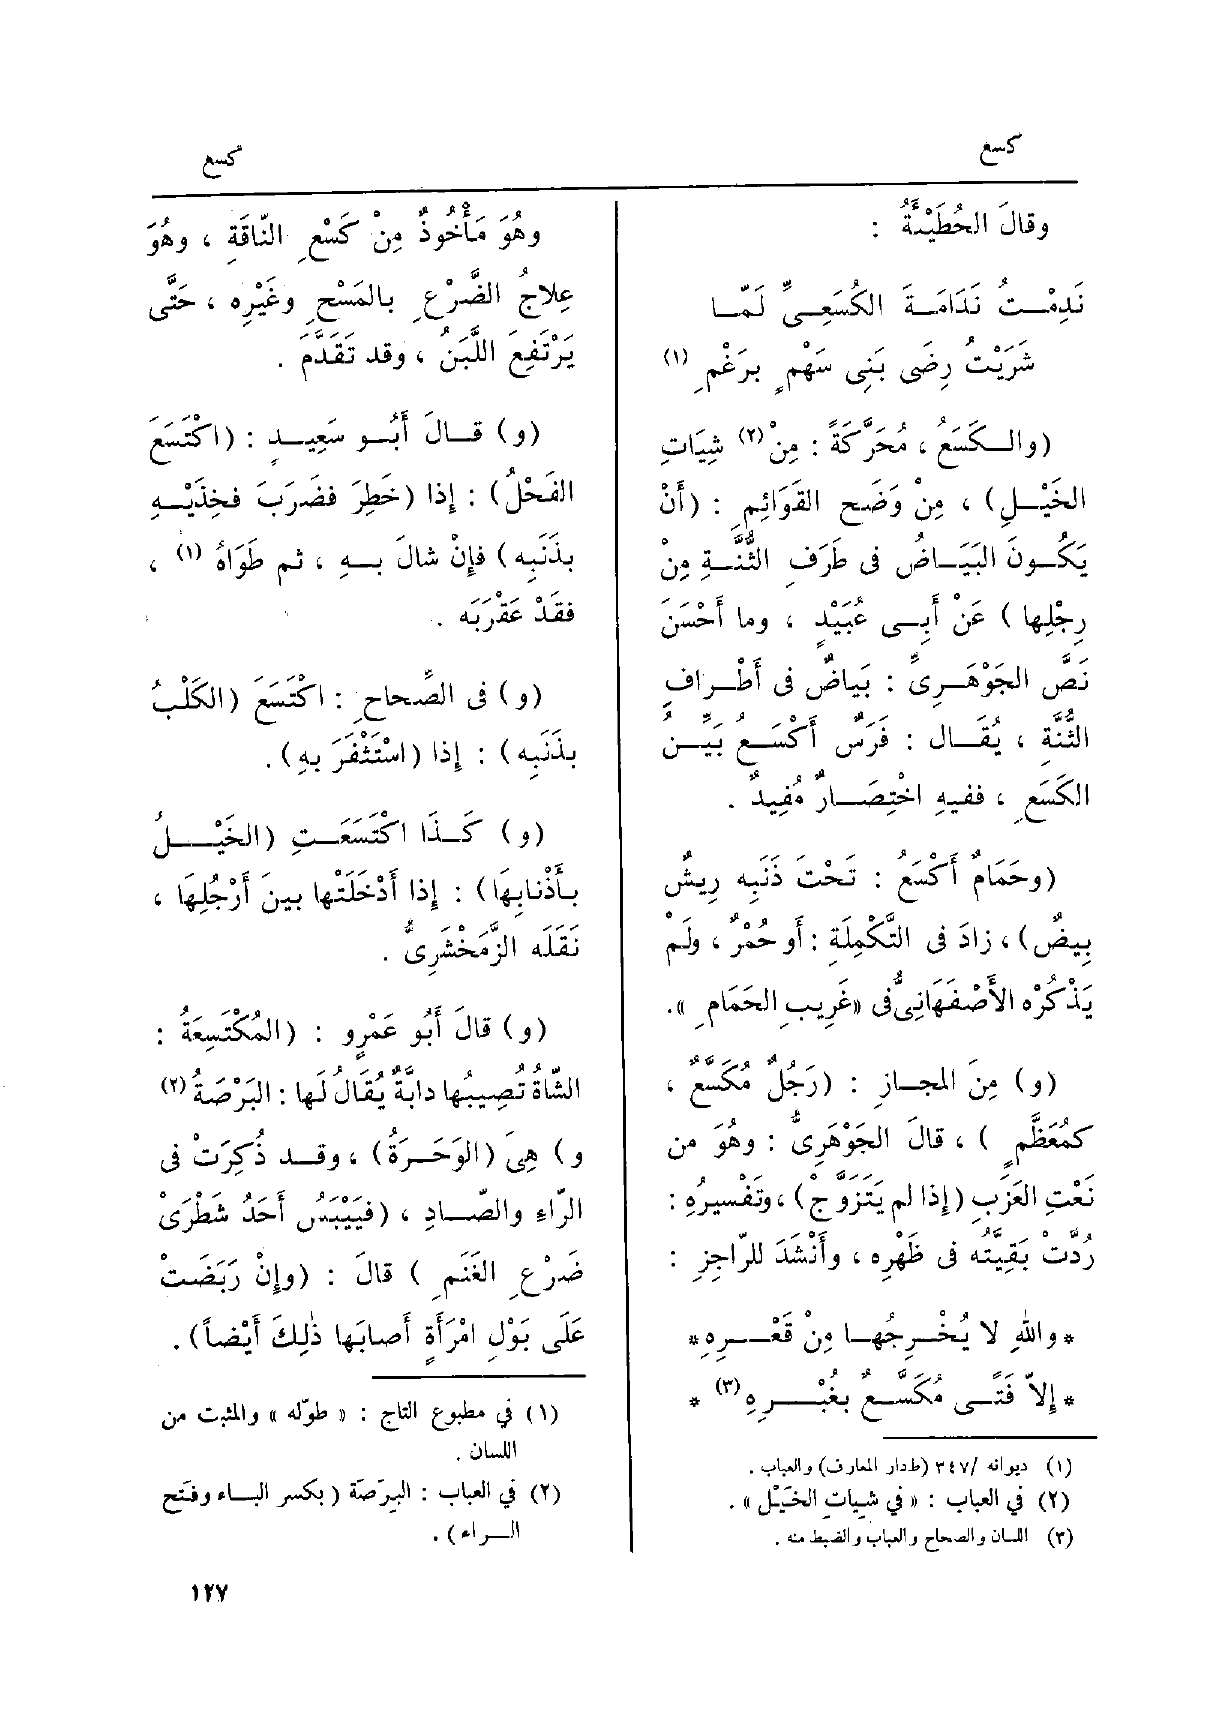 كسع
كسع
وقالَ الحُطَيْئَةُ :
نَدِمْتُ نَدَامَةَ الكُسَعِيِّ لَمّا
شَرَيْتُ رِضَى بَنِى سَهْمٍ بِرَغْمِ (١)
(والكَسَعُ ، مُحَرَّكَةً : مِنْ (٢) شِيَاتِ
الخَيْلِ) ، مِنْ وَضَحِ القَوَائِمِ : (أَنْ
يَكُونَ البَيَاضُ فى طَرَفِ الثُّنَّةِ مِنْ
رِجْلِها ) عَنْ أَبِى عُبَيْدٍ ، وما أَحْسَنَ
نَصَّ الجَوْهَرِىِّ : بَيَاضٌ فى أَطْرافِ
الثُّنَّةِ ، يُقَال : فَرَسٌ أَكْسَعُ بَيِّنُ
الكَسَعِ ، ففيهِ اخْتِصَارٌ مُفِيدٌ .
(وحَمَامٌ أَكْسَعُ : تَحْتَ ذَنَبِه رِيشٌ
بِيضٌ) ، زادَ فى التَّكْمِلَةِ : أَو حُمْرٌ ، ولَمْ
يَذْكُرْه الأَصْفَهَانِىُّ فى «غَرِيبِ الحَمَامِ ».
(و) مِنَ المجازِ : (رَجُلٌ مُكَسَّعٌ ،
كمُعَظَّمٍ ) ، قالَ الجَوْهَرِىُّ : وهُوَ من
نَعْتِ العَزَبِ (إِذا لم يَتَزَوَّجْ) ، وتَفْسِيرُه :
رُدَّتْ بَقِيَّتُه فى ظَهْرِه ، وأَنْشَدَ للرّاجِزِ :
* واللهِ لا يُخْرِجُها مِنْ قَعْرِه *
* إِلاّ فَتًى مُكَسَّعٌ بغُبْرِهِ (٣) *
(١) ديوانه /٣٤٧ (ط.دار المعارف) والعباب .
(٢) في العباب : « في شِيات الخَيْل » .
(٣) اللسان والصحاح والعباب والضبط منه .
وهُوَ مَأْخُوذٌ مِنْ كَسْعِ النّاقَةِ ، وهُوَ
عِلاجُ الضَّرْعِ بالمَسْحِ وغَيْرِه ، حَتَّى
يَرْتَفِعَ اللَّبَنُ ، وقد تَقَدَّمَ .
(و) قالَ أَبُو سَعِيدٍ : (اكْتَسَعَ
الفَحْلُ) : إِذا (خَطِرَ فضَرَبَ فخِذَيْهِ
بذَنَبِه) فإِنْ شالَ بهِ ، ثم طَوَاهُ (١) ،
فقَدْ عَقْرَبَه .
(و) فى الصّحاحِ : اكْتَسَعَ (الكَلْبُ
بذَنَبِه) : إِذا (اسْتَثْفَرَ بهِ) .
(و) كَذَا اكْتَسَعَتِ (الخَيْلُ
بأَذْنابِهَا) : إِذا أَدْخَلَتْها بينَ أَرْجُلِهَا ،
نَقَلَه الزَّمَخْشَرِىُّ .
(و) قالَ أَبُو عَمْرٍو : (المُكْتَسِعَةُ :
الشّاةُ تُصِيبُها دابَّةٌ يُقَالُ لَها : البَرْصَةُ (٢)
و) هِىَ (الوَحَرَةُ) ، وقد ذُكِرَتْ فى
الرّاءِ والصّادِ ، (فيَيْبَسُ أَحَدُ شَطْرَىْ
ضَرْعِ الغَنَمِ ) قالَ : (وإِنْ رَبَضَتْ
عَلَى بَوْلِ امْرَأَةٍ أَصابَها ذٰلِكَ أَيْضاً) .
(١) في مطبوع التاج : « طوّله » والمثبت من
اللسان .
(٢) في العباب : البِرَصَة ( بكسر الباء وفتح
الراء ) .
١٢٧